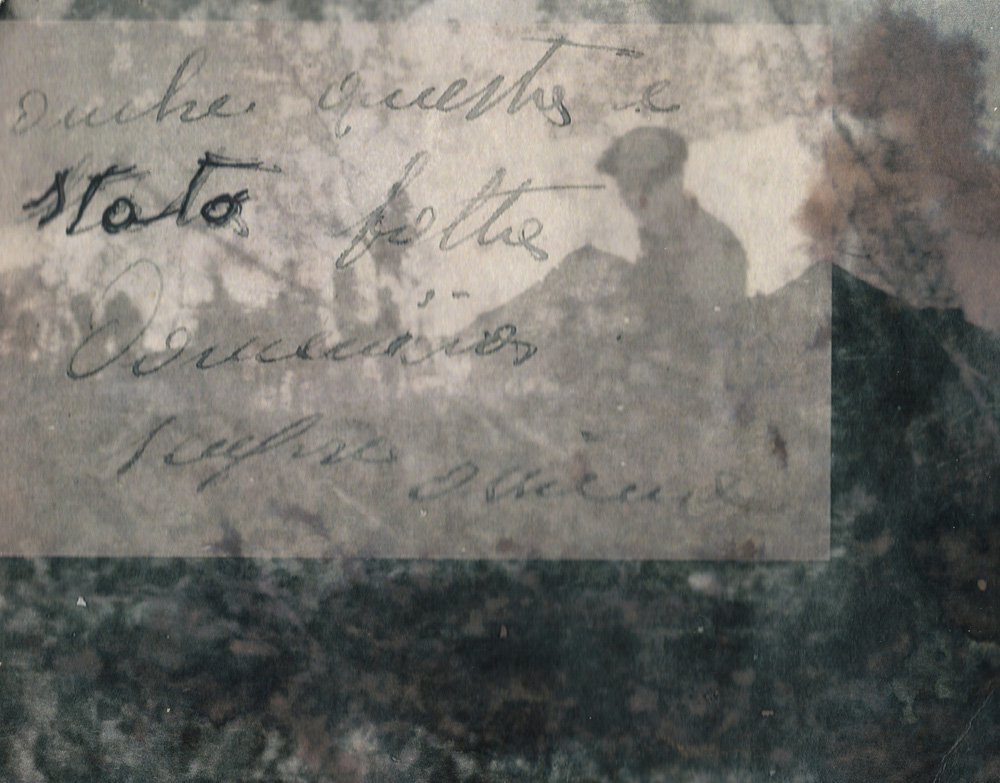 anche questa è
stato fatta
Domenica
scorsa